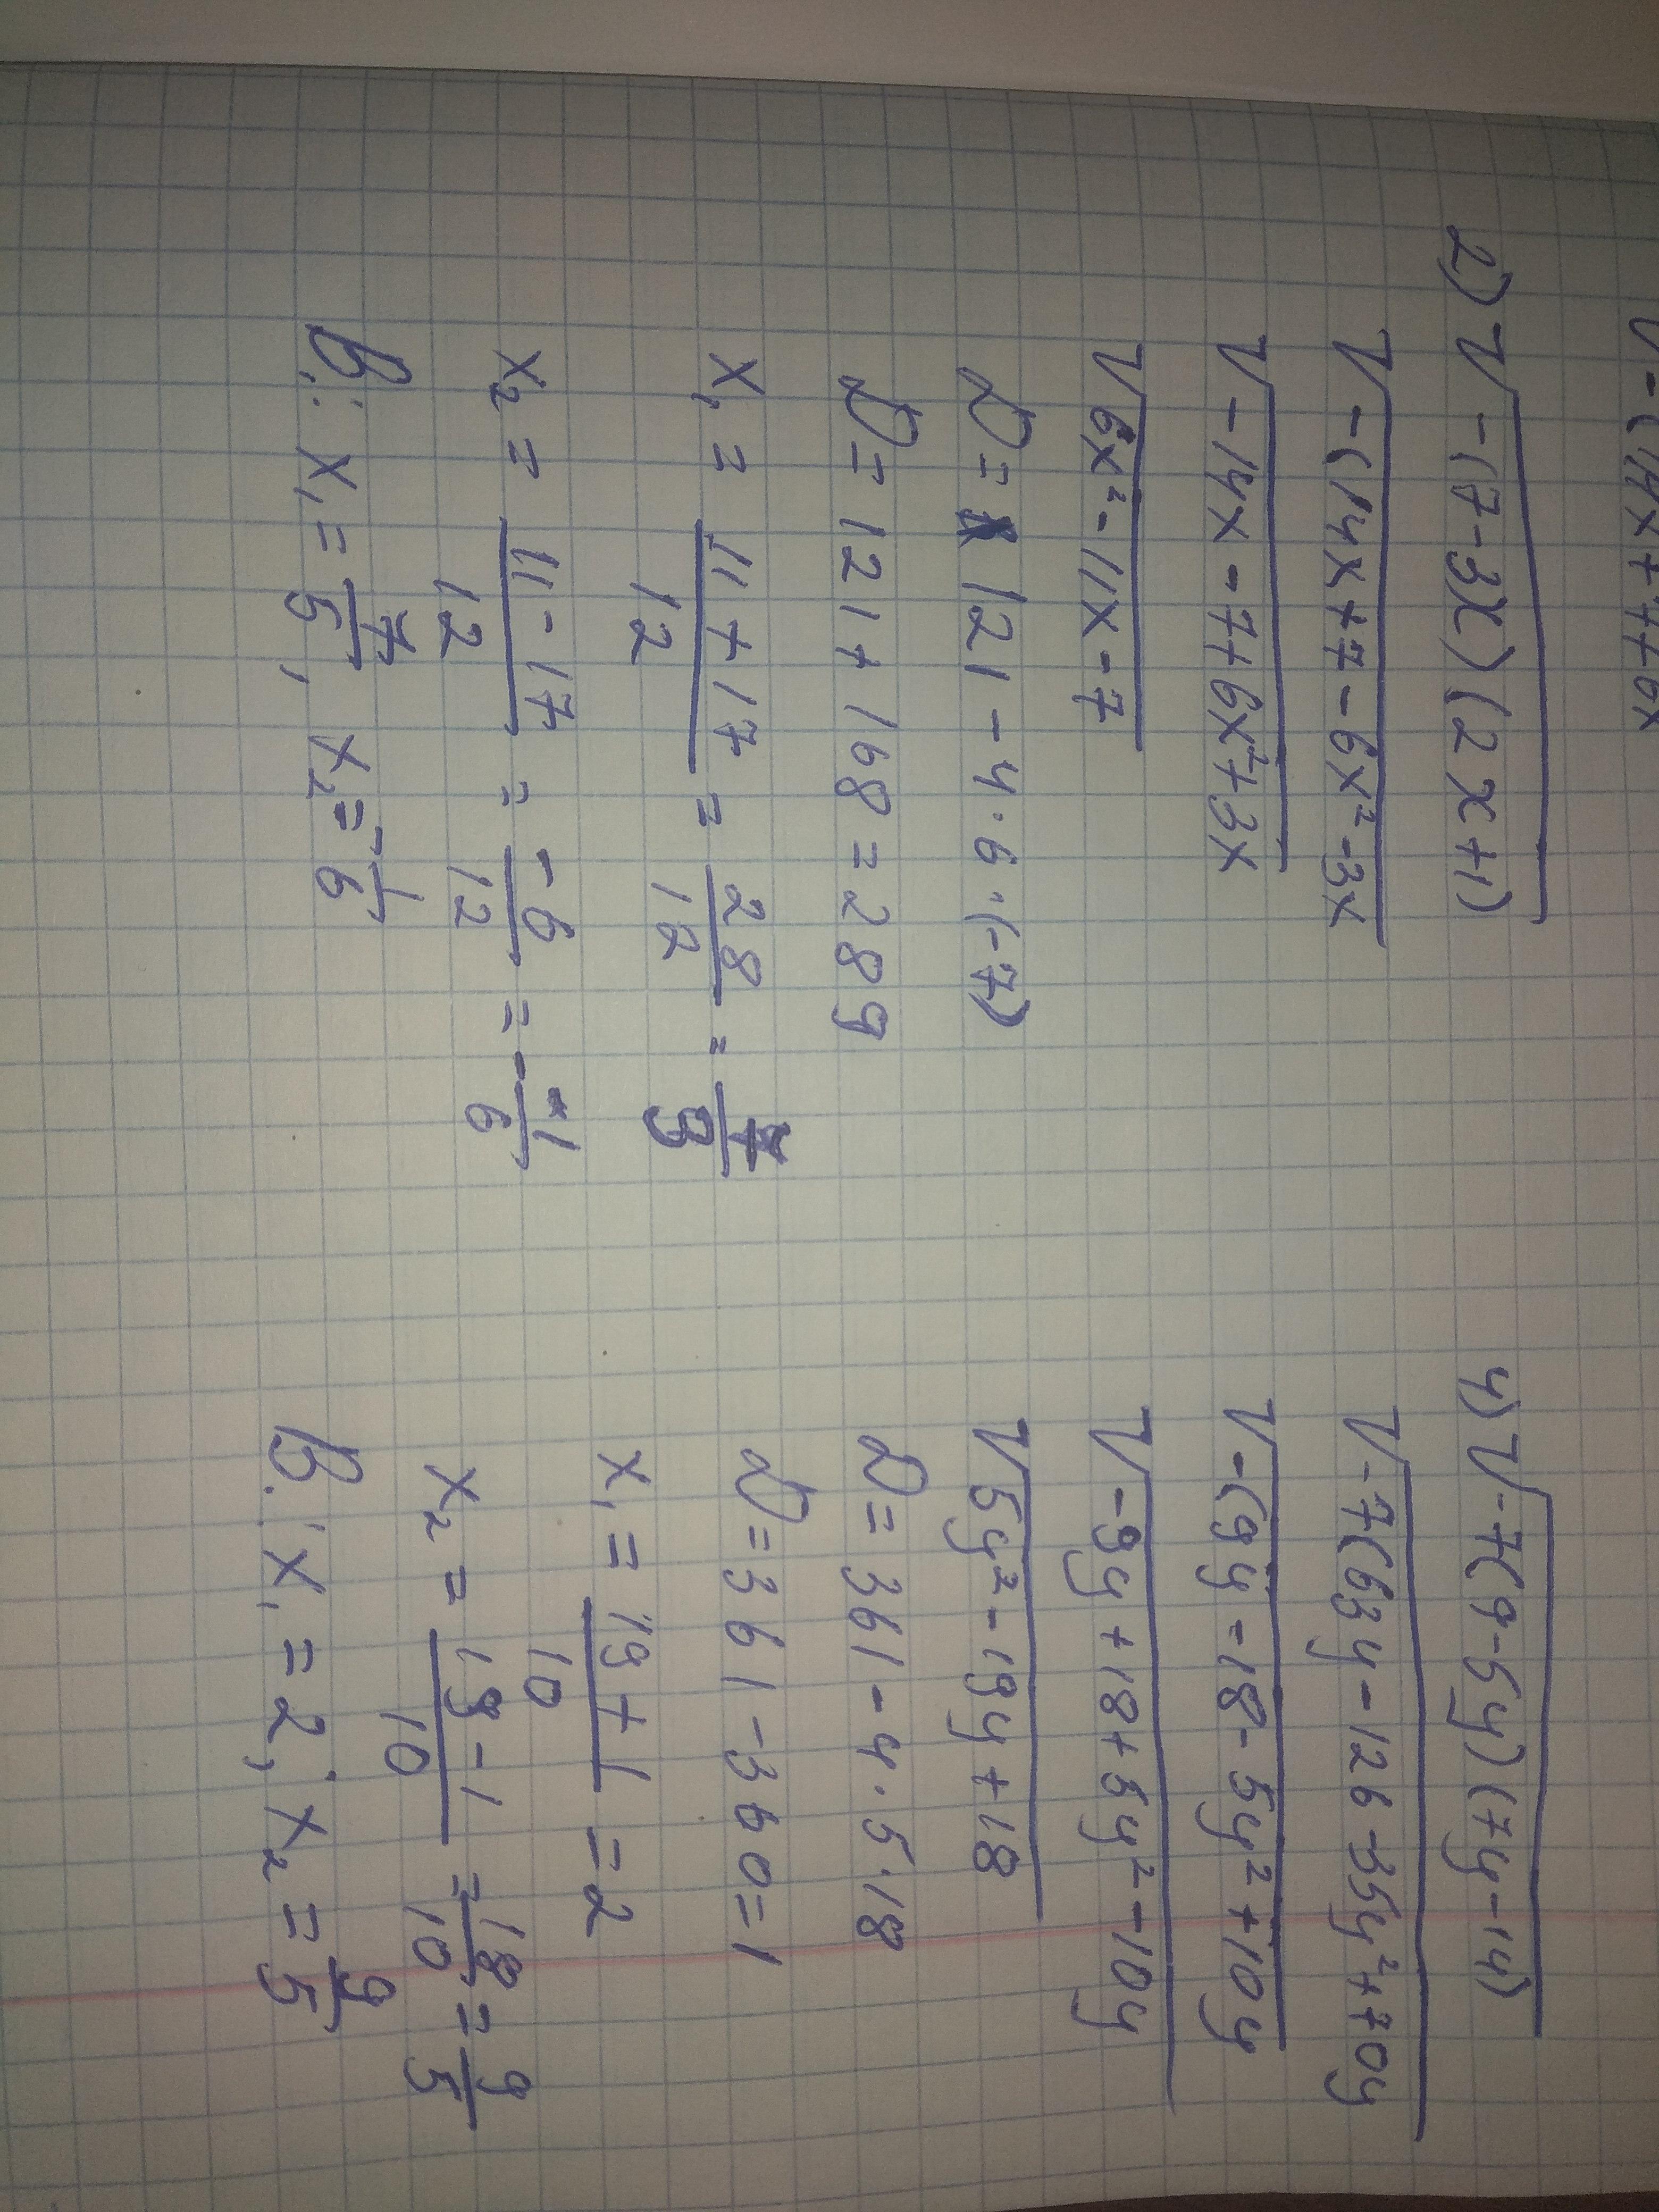 √-(14x+7+6x
2) √-(7-3x)(2x+1)
√-(14x+7-6x²-3x
√-14x-7+6x²+3x
√6x²-11x-7
D= 121-4·6·(-7)
D=121+168=289
x₁ = 11+17/12 = 28/12 = 7/3
x₂ = 11-17/12 = -6/12 = -1/6
В.: x₁=7/5, x₂=-1/6
4) √-7(9-5y)(7y-14)
√-7(63y-126-35y²+70y
√-(9y-18-5y²+10y
√-9y+18+5y²-10y
√5y²-19y+18
D=361-4·5·18
D=361-360=1
x₁ = 19+1/10 = 2
x₂ = 19-1/10 = 18/10 = 9/5
В.: x₁=2; x₂=9/5